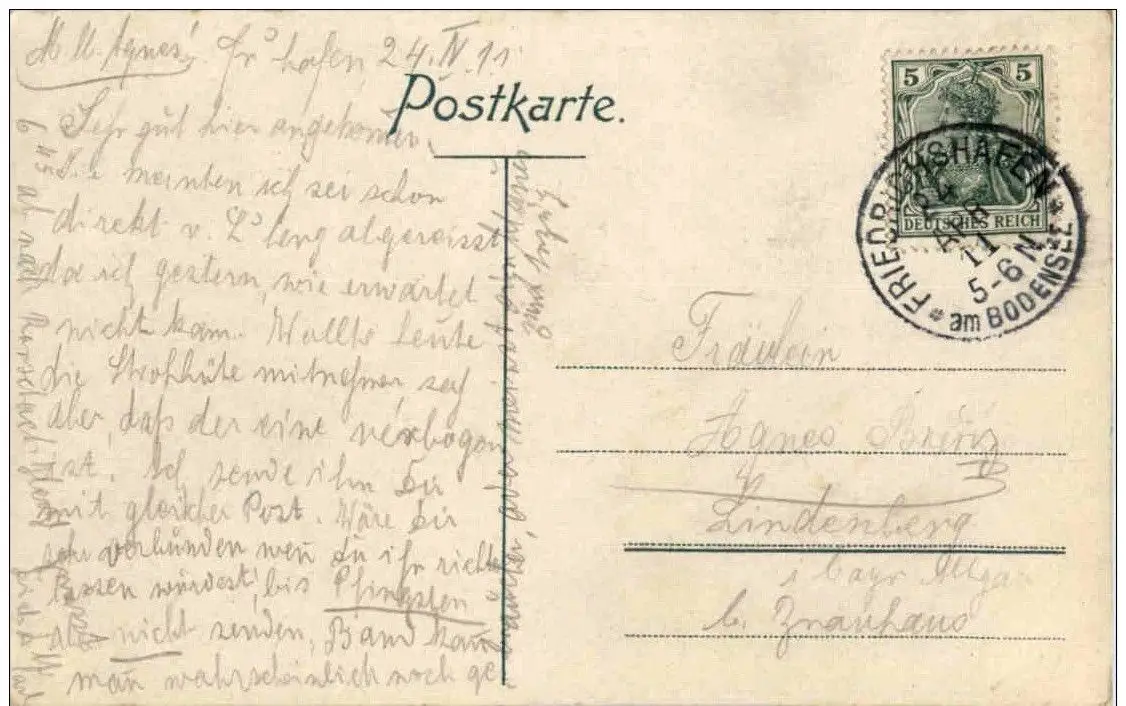 M. U. Agnes! Fr'hafen, 24. IV. 11.
Sehr gut hier angekommen.
meinten ich sei schon
direkt v. L'berg abgereisst
da ich gestern, wie erwartet
nicht kam. Wollte heute
die Strohhüte mitnehmen, sah
aber, daß der eine verbogen
ist. Ich sende ihn Dir
mit gleicher Post. Wäre Dir
sehr verbunden wen Du ihn richten
lassen würdest, bis Pfingsten
nicht senden, Band kann
man wahrscheinlich noch ge-
6 45 ab nach Rorschach
Gruß
Postkarte.
5 5
DEUTSCHES REICH
FRIEDRICHSHAFEN
24
APR
11
5-6 N
* am BODENSEE *
Fräulein
Agnes
Lindenberg
i bayr. Allgäu
b.